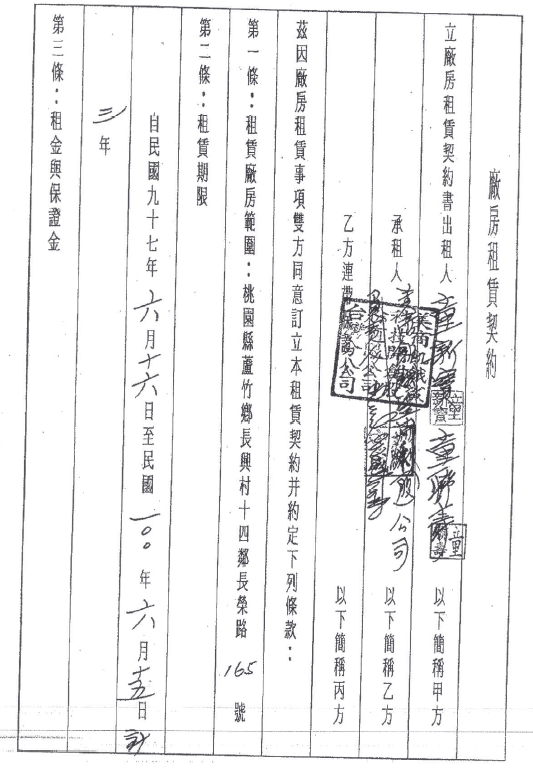 廠房租賃契約
立廠房租賃契約書出租人 以下簡稱甲方
承租人 公司 以下簡稱乙方
乙方連帶 以下簡稱丙方
茲因廠房租賃事項雙方同意訂立本租賃契約并約定下列條款：
第一條：租賃廠房範圍：桃園縣蘆竹鄉長興村十四鄰長榮路165號
第二條：租賃期限
自民國九十七年六月十六日至民國一○○年六月十五日計
三年
第三條：租金與保證金